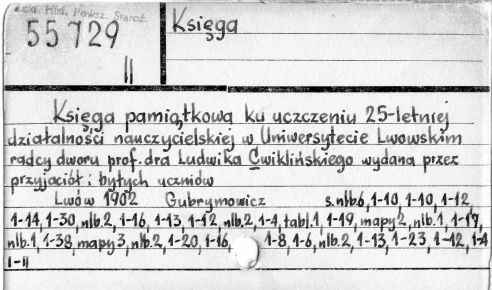 Hist. Powsz. Staroż.
55729
II
Księga
Księga pamiątkowa ku uczczeniu 25-letniej
działalności nauczycielskiej w Uniwersytecie Lwowskim
radcy dworu prof. dra Ludwika Ćwiklińskiego wydana przez
przyjaciół i byłych uczniów
Lwów 1902 Gubrymowicz s.nlb6, 1-10, 1-10, 1-12,
1-14, 1-30, nlb.2, 1-16, 1-13, 1-12, nlb,2, 1-4, tabl.1, 1-19, mapy 2, nlb.1, 1-17,
nlb.1, 1-38, mapy 3, nlb.2, 1-20, 1-16, 1-8, 1-6, nlb.2, 1-13, 1-23, 1-12, 1-4
1-11